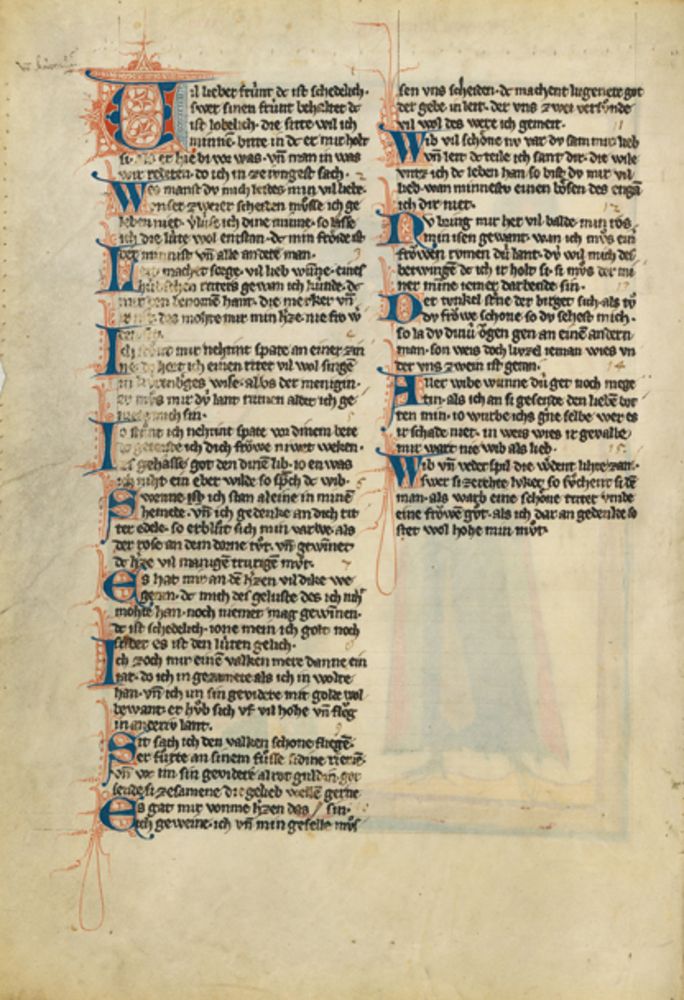 Vil lieber frúnt dc ist schedelich·
swer sinen frúnt behaltet dc
ist lobelich· die sitte wil ich
minnen· bitte in dc er mir holt
si· als er hie bi vor was· vñ man in was
wir redeten· do ich in ze iungest sach·
Wes manst dv mich leides min vil liebe·
vnser zweier scheiden mv̊sse ich ge
leben niet· v̾lúse ich dine minne· so lasse
ich die lúte wol entstan· dc min frôide ist
der minnist· vñ alle andere man·
Leit machet sorge· vil lieb wúnne· eines
húbschen ritters gewan ich kúnde· dc
mir den benomen hant· die merker vñ
ir nit· des mohte mir min h̾ze nie fro w̾
den·
Ich stv̊nt mir nehtint spate an einer zin
ne· do hort ich einen ritter vil wol singē
in kúrenberges wise· al vs der menigin·
er mv̊s mir dú lant rumen alder ich ge
niete mich sin·
Io stv̊nt ich nehtint spate vor dinem bete
do getorste ich dich frowe niwet weken·
des gehasse got den dinē lib· io en was
ich niht ein eber wilde so sp̾ch dc wib·
Swenne ich stan aleine in minē
hemede· vñ ich gedenke an dich rit
ter edele· so erblût sich min varwe· als
der rose an dem dorne tv̊t· vñ gewinet
dc h̾ze vil manigē trurigen mv̊t·
Es hat mir an dē h̾zen vil dike we
getan· dc mich des geluste des ich niht
mohte han· noch niemer mag gewinnen·
dc ist schedelich· ione mein ich golt noch
silber es ist den lúten gelich·
Ich zoch mir einē valken mere danne ein
iar· do ich in gezamete als ich in wolte
han· vñ ich im sin gevidere mit golde wol
bewant· er hv̊b sich vf vil hohe vñ flo̊g
in anderú lant·
Sit sach ich den valken schone fliegē·
er fv̊rte an sinem fv̊sse sidine riemē·
vñ wc im sin gevidere alrot guldin· got
sende si zesamene die gelieb wellē gerne
Es gat mir vonme h̾zen das sin·
Ich geweine· ich vñ min geselle mv̊s
sen vns scheiden· dc machent lugenere got
der gebe in leit· der vns zwei versv̊nde
vil wol des were ich gemeit·
Wib vil schône nv var dv sam mir lieb
vñ leit dc teile ich sant dir· die wile
vntz ich dc leben han so bist dv mir vil
lieb· wan minnestv einen bôsen des engā
ich dir niet·
Nv bring mir her vil balde min ros
min isen gewant· wan ich mv̊s ein̾
frôwen rvmen dú lant· dv wil mich des
betwingē dc ich ir holt si· si mv̊s der mi
ner mine iemer darbende sin·
Der tvnkel st̾ne der birget sich· als tv̊
dv frôwe schone so dv sehest mich·
so la dv dinú ôgen gen an einē andern
man· son weis doch lvtzel ieman wies vn
der vns zwein ist getan·
Aller wibe wunne dú get noch mege
tin· als ich an si gesende den liebē bot
ten min· io wurbe ichs g̾ne selbe wer es
ir schade niet· in weis wies ir gevalle·
mir wart nie wib als lieb·
Wib vñ veder spil die w̾dent lihte zam·
swer si ze rehte lvket· so sv̊chent si dē
man· als warb eine schône ritter vmbe
eine frôwē gv̊t· als ich dar an gedenke so
stet wol hohe min mv̊t·